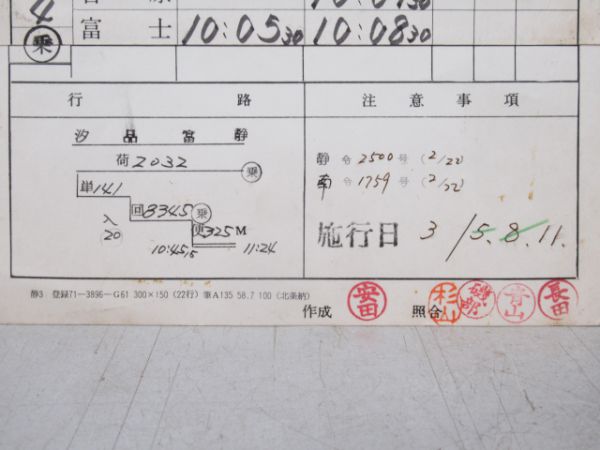 4
乗 富士 10:05 30 10:08 30
行路
注意事項
汐 品 富 静
荷2032 乗
単141
入20
回8345 乗
更325M
10:45,5 11:24
静令2500号 (2/22)
南令1759号 (2/22)
施行日 3/5.8.11.
静3 登録71-3896-G61 300×150 (22行) 筆A135 58.7 100 (北条納)
作成 安田 照合 杉山 磯部 青山 長田